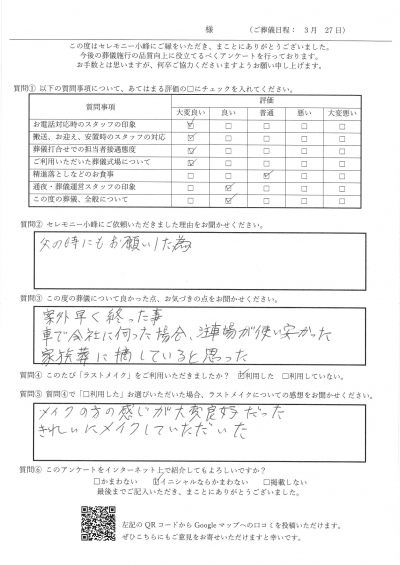 様　（ご葬儀日程： 3月 27日）
この度はセレモニー小峰にご縁をいただき、まことにありがとうございました。
今後の葬儀施行の品質向上に役立てるべくアンケートを行っております。
お手数とは思いますが、何卒ご協力くださいますようお願い申し上げます。
質問① 以下の質問事項について、あてはまる評価の□にチェックを入れてください。
質問事項 評価
大変良い 良い 普通 悪い 大変悪い
お電話対応時のスタッフの印象 ☑ □ □ □ □
搬送、お迎え、安置時のスタッフの対応 ☑ □ □ □ □
葬儀打合せでの担当者接遇態度 ☑ □ □ □ □
ご利用いただいた葬儀式場について ☑ □ □ □ □
精進落としなどのお食事 □ □ ☑ □ □
通夜・葬儀運営スタッフの印象 □ ☑ □ □ □
この度の葬儀、全般について □ ☑ □ □ □
質問② セレモニー小峰にご依頼いただきました理由をお聞かせください。
父の時にもお願いした為
質問③ この度の葬儀について良かった点、お気づきの点をお聞かせください。
案外早く終った事
車で会社に伺った場合、注車場が使い安かった
家族葬に摘していると思った
質問④ このたび「ラストメイク」をご利用いただきましたか？ ☑利用した □利用していない。
質問⑤ 質問④で「□利用した」お選びいただいた場合、ラストメイクについての感想をお聞かせください。
メイクの方の感じが大変良好だった
きれいにメイクしていただいた
質問⑥ このアンケートをインターネット上で紹介してもよろしいですか？
□かまわない ☑イニシャルならかまわない □掲載しない
最後までご記入いただき、まことにありがとうございました。
左記のQRコードからGoogleマップへの口コミを投稿いただけます。
ぜひこちらにもご意見をお寄せいただけますと幸いです。